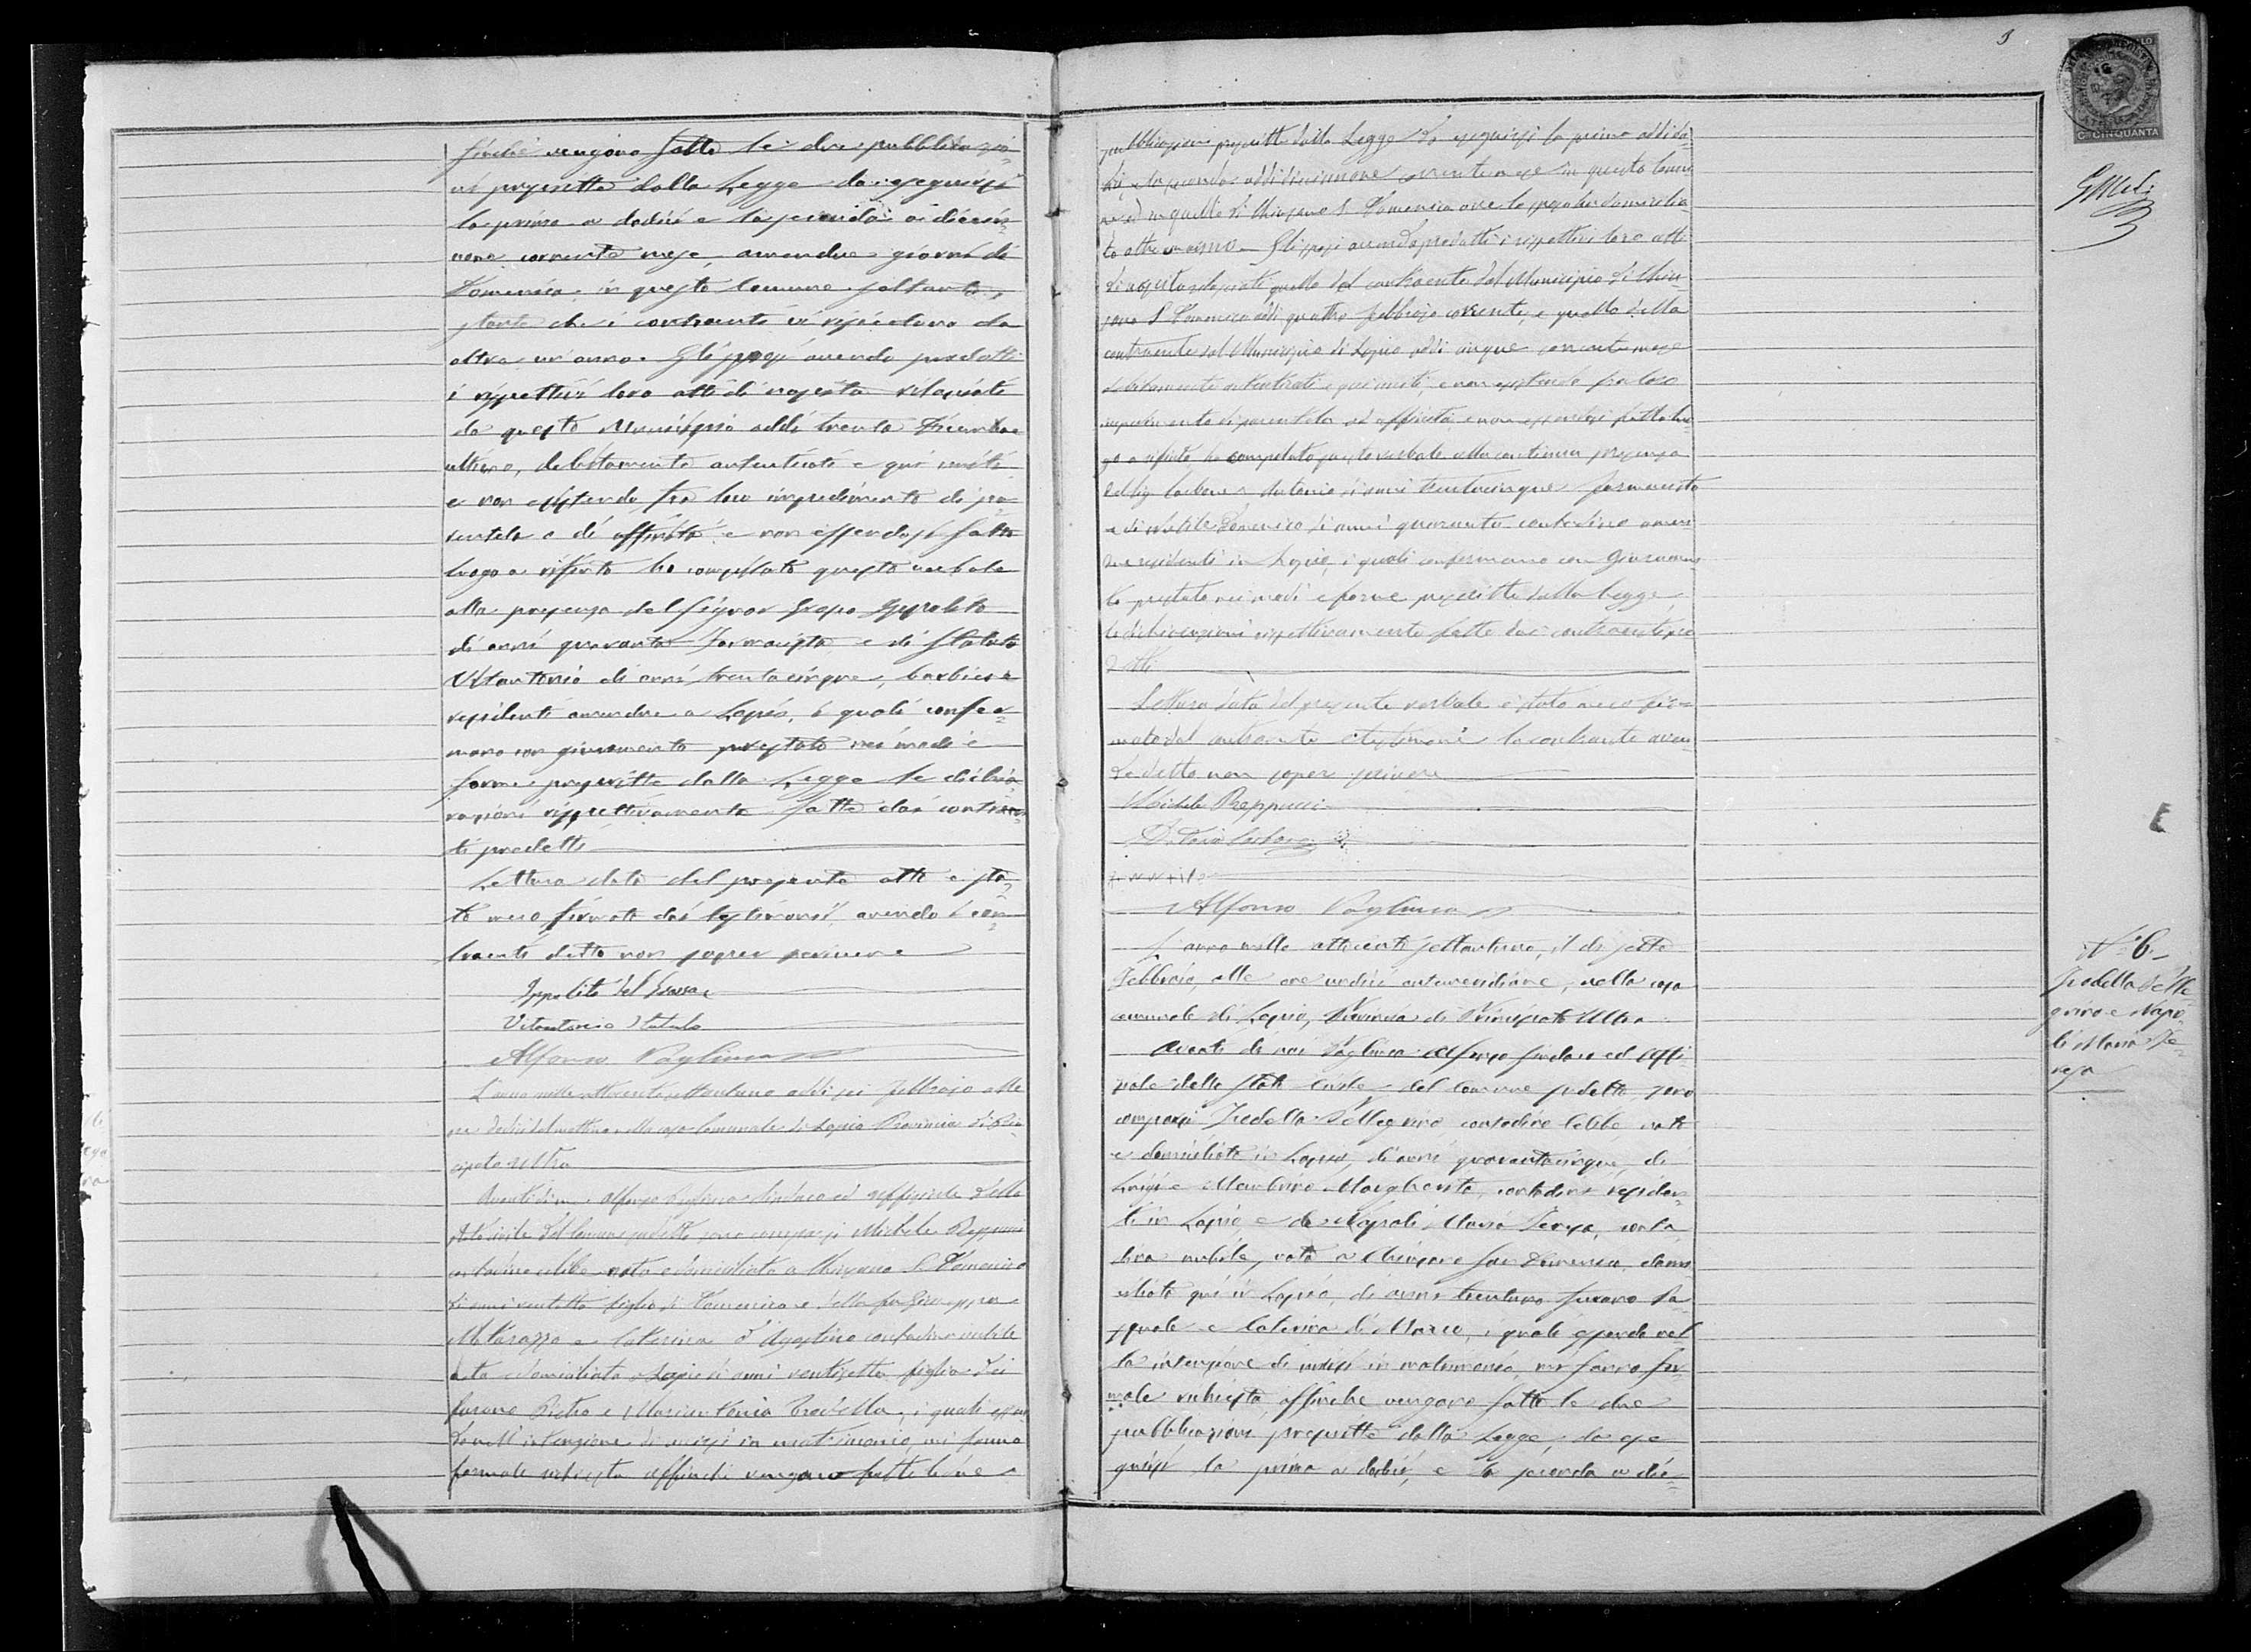 finchè vengono fatte le due pubblicazio-
ni prescritte dalla Legge da eseguirsi
la prima a dodici e la seconda a dician-
nove corrente mese, amendue giorni di
Domenica in questo Comune soltanto,
stante che i contraenti vi risiedono da
oltre un anno. Gli sposi avendo prodotti
i rispettivi loro atti di nascita rilasciati
da questo Municipio addì trenta Dicembre
ultimo, debitamente autenticati e qui uniti
e non esistendo fra loro impedimento di pa-
rentela o di affinità e non essendosi fatto
luogo a rifiuto ho compilato questo verbale
alla presenza del Signor Ippolito
di anni quaranta Farmacista e di Statuto
Vitantonio di anni trentacinque, barbiere
residenti amendue a Lapio, i quali confer-
mano con giuramento prestato nei modi e
forme prescritte dalla Legge le dichia-
razioni rispettivamente fatte dai contraen-
ti predetti
Lettura data del presente atto è sta-
to meco firmato dai testimoni, avendo i con-
traenti detto non saper scrivere
Ippolito del
Vitantonio Statuto
Alfonso Pagliuca
L'anno mille ottocento settantuno addì sei Febbrajo alle
ore dodici del mattino nella casa Comunale di Lapio Provincia di Prin-
cipato Ultra
Avanti di me Alfonso Pagliuca Sindaco ed uffiziale dello
Stato Civile del Comune suddetto sono comparsi Michele Reppucci
contadino celibe nato e domiciliato a Chiusano S. Domenico
di anni ventotto figlio di Domenico e della fu Giuseppa
Matarazzo e Caterina D'Agostino contadina nubile
nata e domiciliata a Lapio di anni ventisette figlia dei
furono Pietro e Mariantonia Trodella, i quali essen-
do nell'intenzione di unirsi in matrimonio, mi fanno
formale richiesta affinchè vengano fatte le due
pubblicazioni prescritte dalla Legge da eseguirsi la prima addì do-
dici e la seconda addì diciannove corrente mese in questo Comu-
ne ed in quello di Chiusano S. Domenico ove lo sposo è domicilia-
to oltre un anno. Gli sposi avendo prodotti i rispettivi loro atti
di nascita rilasciati quello del contraente dal Municipio di Chiu-
sano S. Domenico addì quattro febbrajo corrente, e quello della
contraente dal Municipio di Lapio addì cinque corrente mese
debitamente autenticati e qui uniti, e non esistendo fra loro
impedimento di parentela od affinità e non essendosi fatto luo-
go a rifiuto ho compilato questo verbale alla continua presenza
del Sig. Carbone Antonio di anni trentacinque farmacista
e di Domenico di anni quaranta contadino amen-
due residenti in Lapio, i quali confermano con giuramen-
to prestato nei modi e forme prescritte dalla Legge,
le dichiarazioni rispettivamente fatte dai contraenti pre-
detti
Lettura data del presente verbale è stato meco fir-
mato dal contraente e testimoni la contraente aven-
do detto non saper scrivere
Michele Reppucci
Antonio Carbone
Alfonso Pagliuca
L'anno mille ottocento settantuno, il dì sette
Febbraio, alle ore undici antemeridiane, nella casa
comunale di Lapio, Provincia di Principato Ultra
Avanti di noi Pagliuca Alfonso Sindaco ed Uffi-
ziale dello Stato Civile del Comune sudetto, sono
comparsi Trodella Pellegrino contadino celibe, nato
e domiciliato in Lapio, di anni quarantacinque, di
Luigi e Margherita, contadini residen-
ti in Lapio, e de Napoli Maria Teresa, conta-
dina nubile, nata a Chiusano San Domenico, domi-
ciliata qui in Lapio, di anni trentuno furono Pa-
squale e Caterina di Marco, i quali essendo nel-
la intenzione di unirsi in matrimonio, mi fanno for-
male richiesta affinchè vengano fatte le due
pubblicazioni prescritte dalla Legge, da ese-
guirsi la prima a dodici, e la seconda a dic-
C. CINQUANTA
N.º 6.
Trodella Pelle-
grino e Napo-
li Maria Te-
resa